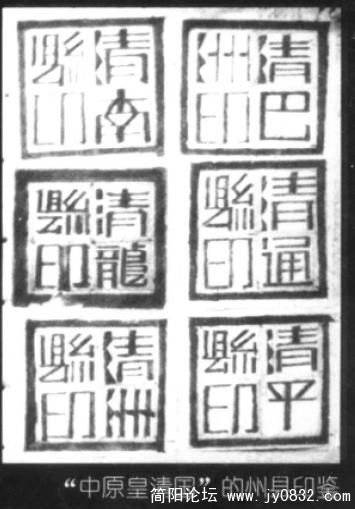 清巴
洲印
清
縣印
清通
縣印
清龍
縣印
清平
縣印
清州
縣印
“中原皇清国”的州县印鉴
简阳论坛 www.jy0832.com